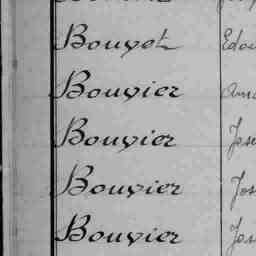 Bouvot Edou
Bouvier Ama
Bouvier Jose
Bouvier Jos
Bouvier Jos